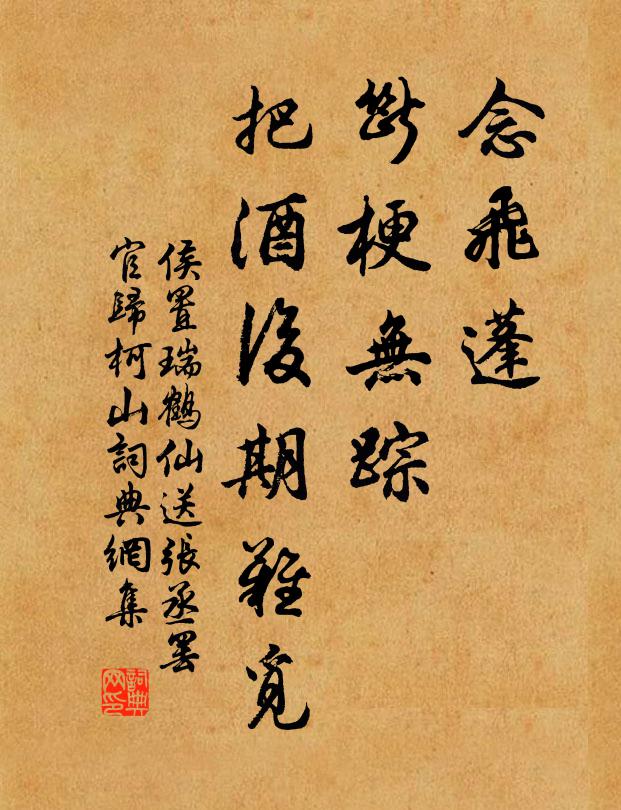 念飛蓬
斷梗無踪
把酒後期難覓
侯置瑞鶴仙送張丞罷
官歸柯山詞典網集
詞典
网印